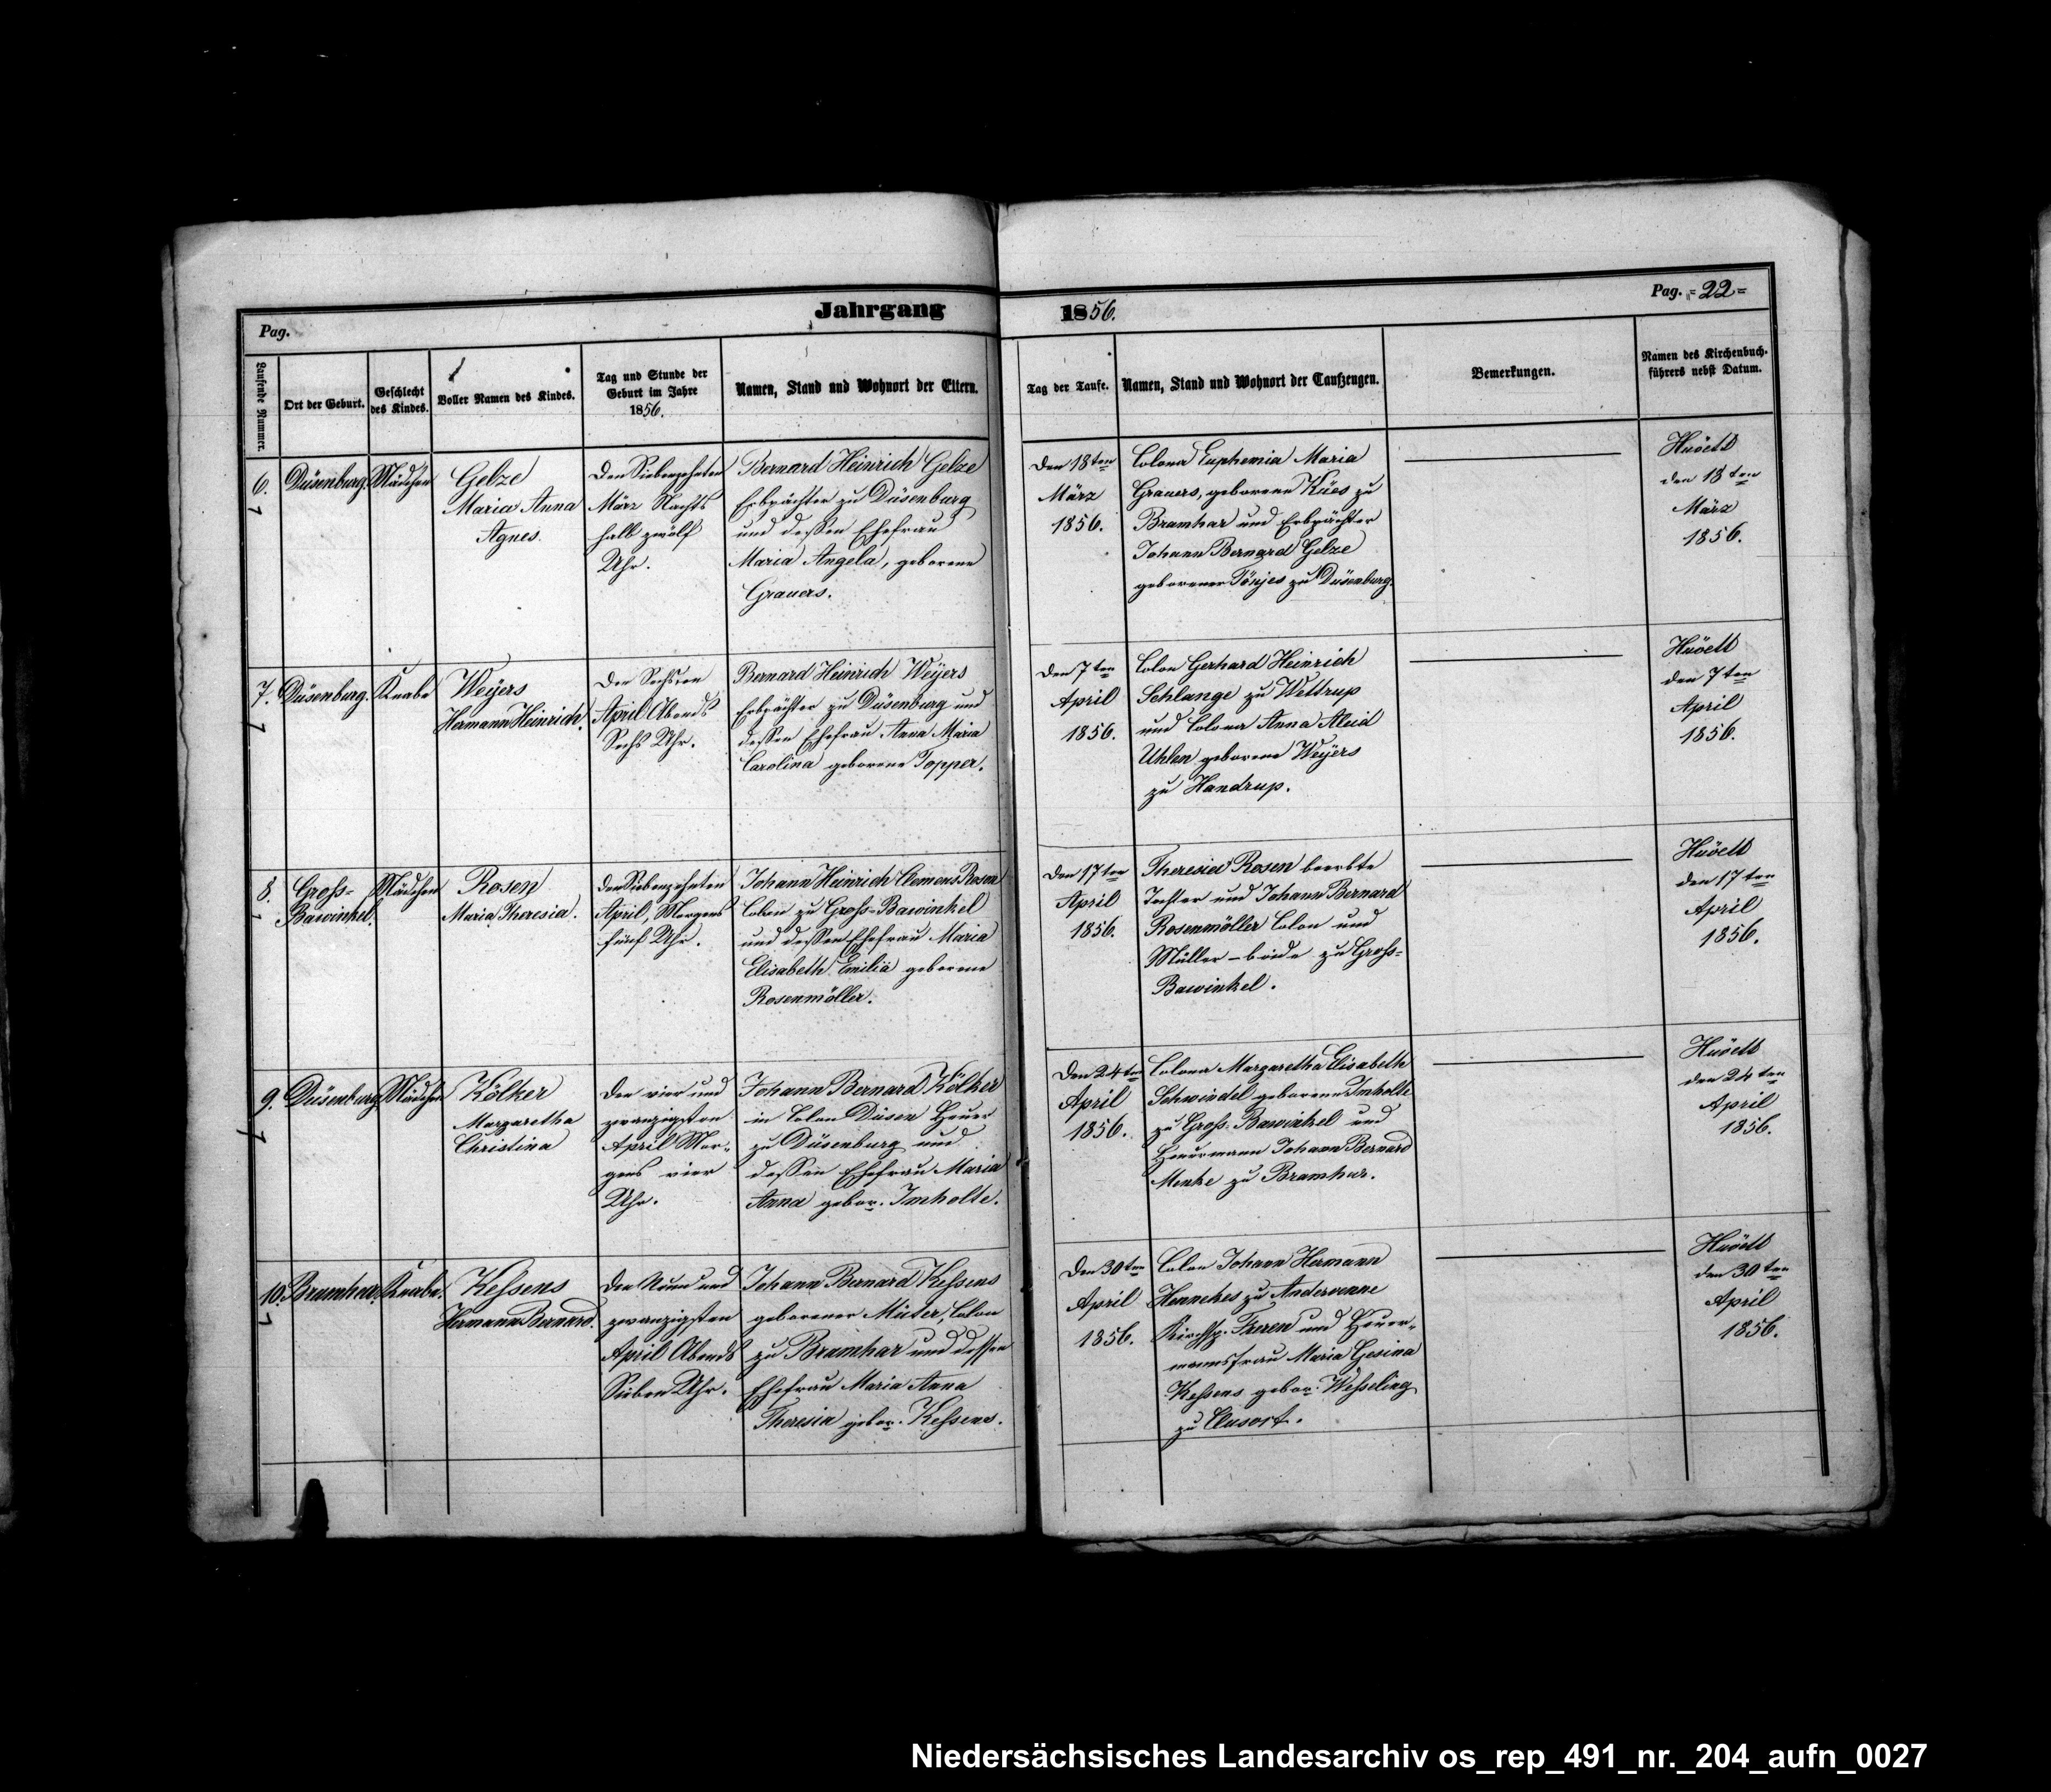 Pag.
Jahrgang 1856.
Pag. =22=
Laufende Nummer.
Ort der Geburt.
Geschlecht
des Kindes.
Voller Namen des Kindes.
Tag und Stunde der
Geburt im Jahre
1856.
Namen, Stand und Wohnort der Eltern.
Tag der Taufe.
Namen, Stand und Wohnort der Taufzeugen.
Bemerkungen.
Namen des Kirchenbuch-
führers nebst Datum.
6.
Düsenburg.
Mädchen
Gelze
Maria Anna
Agnes.
Den Siebenzehnten
März Nachts
halb zwölf
Uhr.
Bernard Heinrich Gelze
Erbpächter zu Düsenburg
und dessen Ehefrau
Maria Angela, geborene
Grauers.
Den 18ten
März
1856.
Colona Euphemia Maria
Grauers, geborene Kües zu
Bramhar und Erbpächter
Johann Bernard Gelze
geborener Tönjes zu Düsenburg.
den 18ten
März
1856.
7.
Düsenburg.
Knabe
Weÿers
Hermann Heinrich.
Den Sechsten
April Abends
Sechs Uhr.
Bernard Heinrich Weÿers
Erbpächter zu Düsenburg und
dessen Ehefrau Anna Maria
Carolina geborene Topper.
Den 7ten
April
1856.
Colon Gerhard Heinrich
Schlange zu Wettrup
und Colona Anna Aleid
Uhlen geborene Weÿers
zu Handrup.
den 7ten
April
1856.
8.
Gross=
Bawinkel.
Mädchen
Rosen
Maria Theresia.
Den Siebenzehnten
April, Morgens
fünf Uhr.
Johann Heinrich Clemens Rosen
Colon zu Gross=Bawinkel
und dessen Ehefrau Maria
Elisabeth Emilia geborene
Rosenmöller.
Den 17ten
April
1856.
Theresia Rosen beerbte
Tochter und Johann Bernard
Rosenmöller Colon und
Müller – beide zu Gross=
Bawinkel.
den 17ten
April
1856.
9.
Düsenburg
Mädchen
Kölker
Margaretha
Christina
Den vier und
zwanzigsten
April Mor=
gens vier
Uhr.
Johann Bernard Kölker
in Colon Düsen Heuer
zu Düsenburg und
dessen Ehefrau Maria
Anna gebor. Imholte.
Den 24ten
April
1856.
Colona Margaretha Elisabeth
Schwindel geborene Imholte
zu Gross=Bawinkel und
Heuermann Johann Bernard
Menke zu Bramhar.
den 24ten
April
1856.
10.
Bramhar.
Knabe.
Kessens
Hermann Bernard.
Den Neun und
zwanzigsten
April Abends
Sieben Uhr.
Johann Bernard Kessens
geborener Müter, Colon
zu Bramhar und dessen
Ehefrau Maria Anna
Theresia gebor. Kessens.
Den 30ten
April
1856.
Colon Johann Hermann
Hennekes zu Andervenne
Kirchsp. Freren und Heuer=
mannsfrau Maria Gesina
Kessens gebor. Wesseling
zu Clusort.
den 30ten
April
1856.
Niedersächsisches Landesarchiv os_rep_491_nr._204_aufn_0027